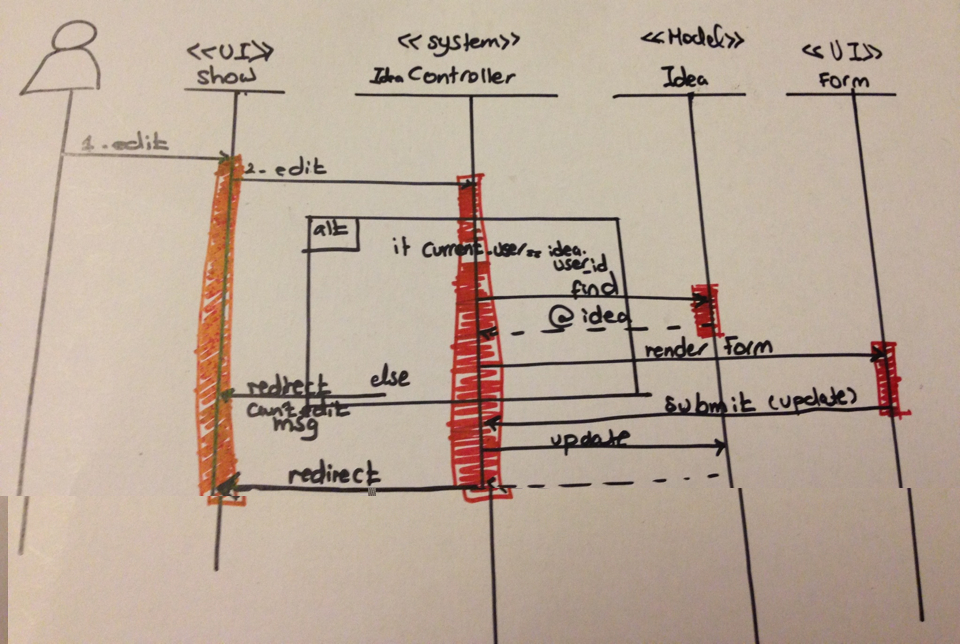 <<UI>>
Show
<<system>>
Idea Controller
<<Model>>
Idea
<<UI>>
Form
1-edit
2- edit
alt
if current-user== idea.
user_id
find
@ idea
render Form
else
redirect
can't edit
msg
submit (update)
update
redirect